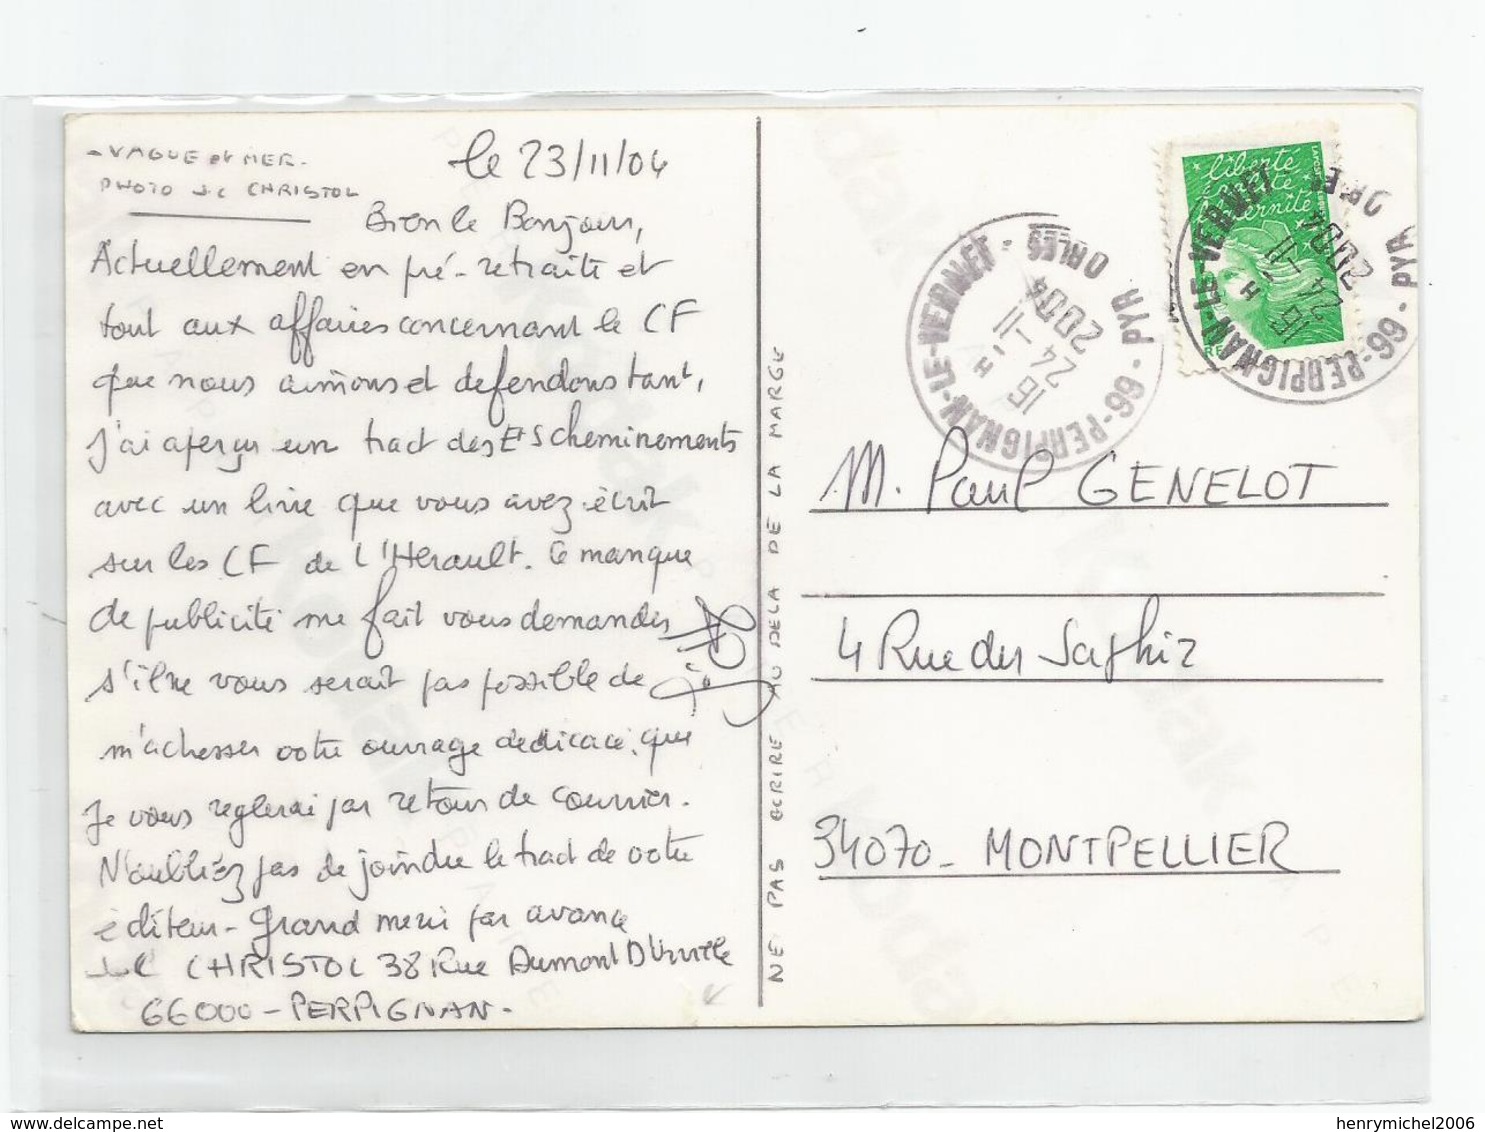 - VAGUE et MER -
PHOTO J.C CHRISTOL
le 23/11/04
Bien le Bonjour,
Actuellement en pré-retraite et
tout aux affaires concernant le CF
que nous aimons et defendons tant,
j'ai aperçu un tract des Ets Cheminements
avec un livre que vous avez écrit
sur les CF de L'Herault. Ce manque
de publicité me fait vous demander
s'il ne vous serait pas possible de
m'achesser votre ouvrage dedicacé, que
Je vous reglerai par retour de courrier.
N'oubliez pas de joindre le tract de votre
éditeur - Grand merci par avance
J.C CHRISTOL 38 Rue Dumont D'Urville
66000 - PERPIGNAN -
NE PAS ECRIRE AU DELA DE LA MARGE
liberté
égalité
fraternité
RF
66-PERPIGNAN-LE-VERNET - PYR ORLES
16 H
24 -11
2004
66-PERPIGNAN-LE-VERNET - PYR ORLES
16 H
24 -11
2004
M. Paul GENELOT
4 Rue du Saphir
34070 - MONTPELLIER
Kodak
henrymichel2006
delcampe.net